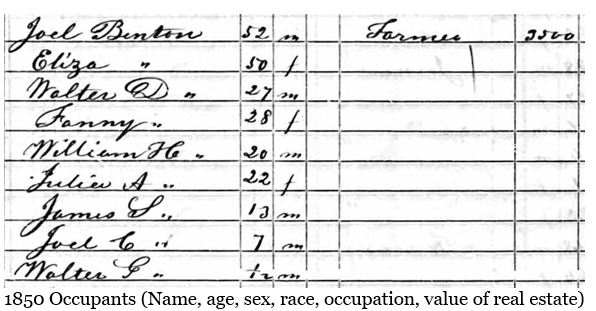 Joel Benton 52 m Farmer 3500
Eliza " 50 f
Walter D " 27 m
Fanny " 28 f
William H " 20 m
Julia A " 22 f
James S " 13 m
Joel C " 7 m
Walter G " m
1850 Occupants (Name, age, sex, race, occupation, value of real estate)